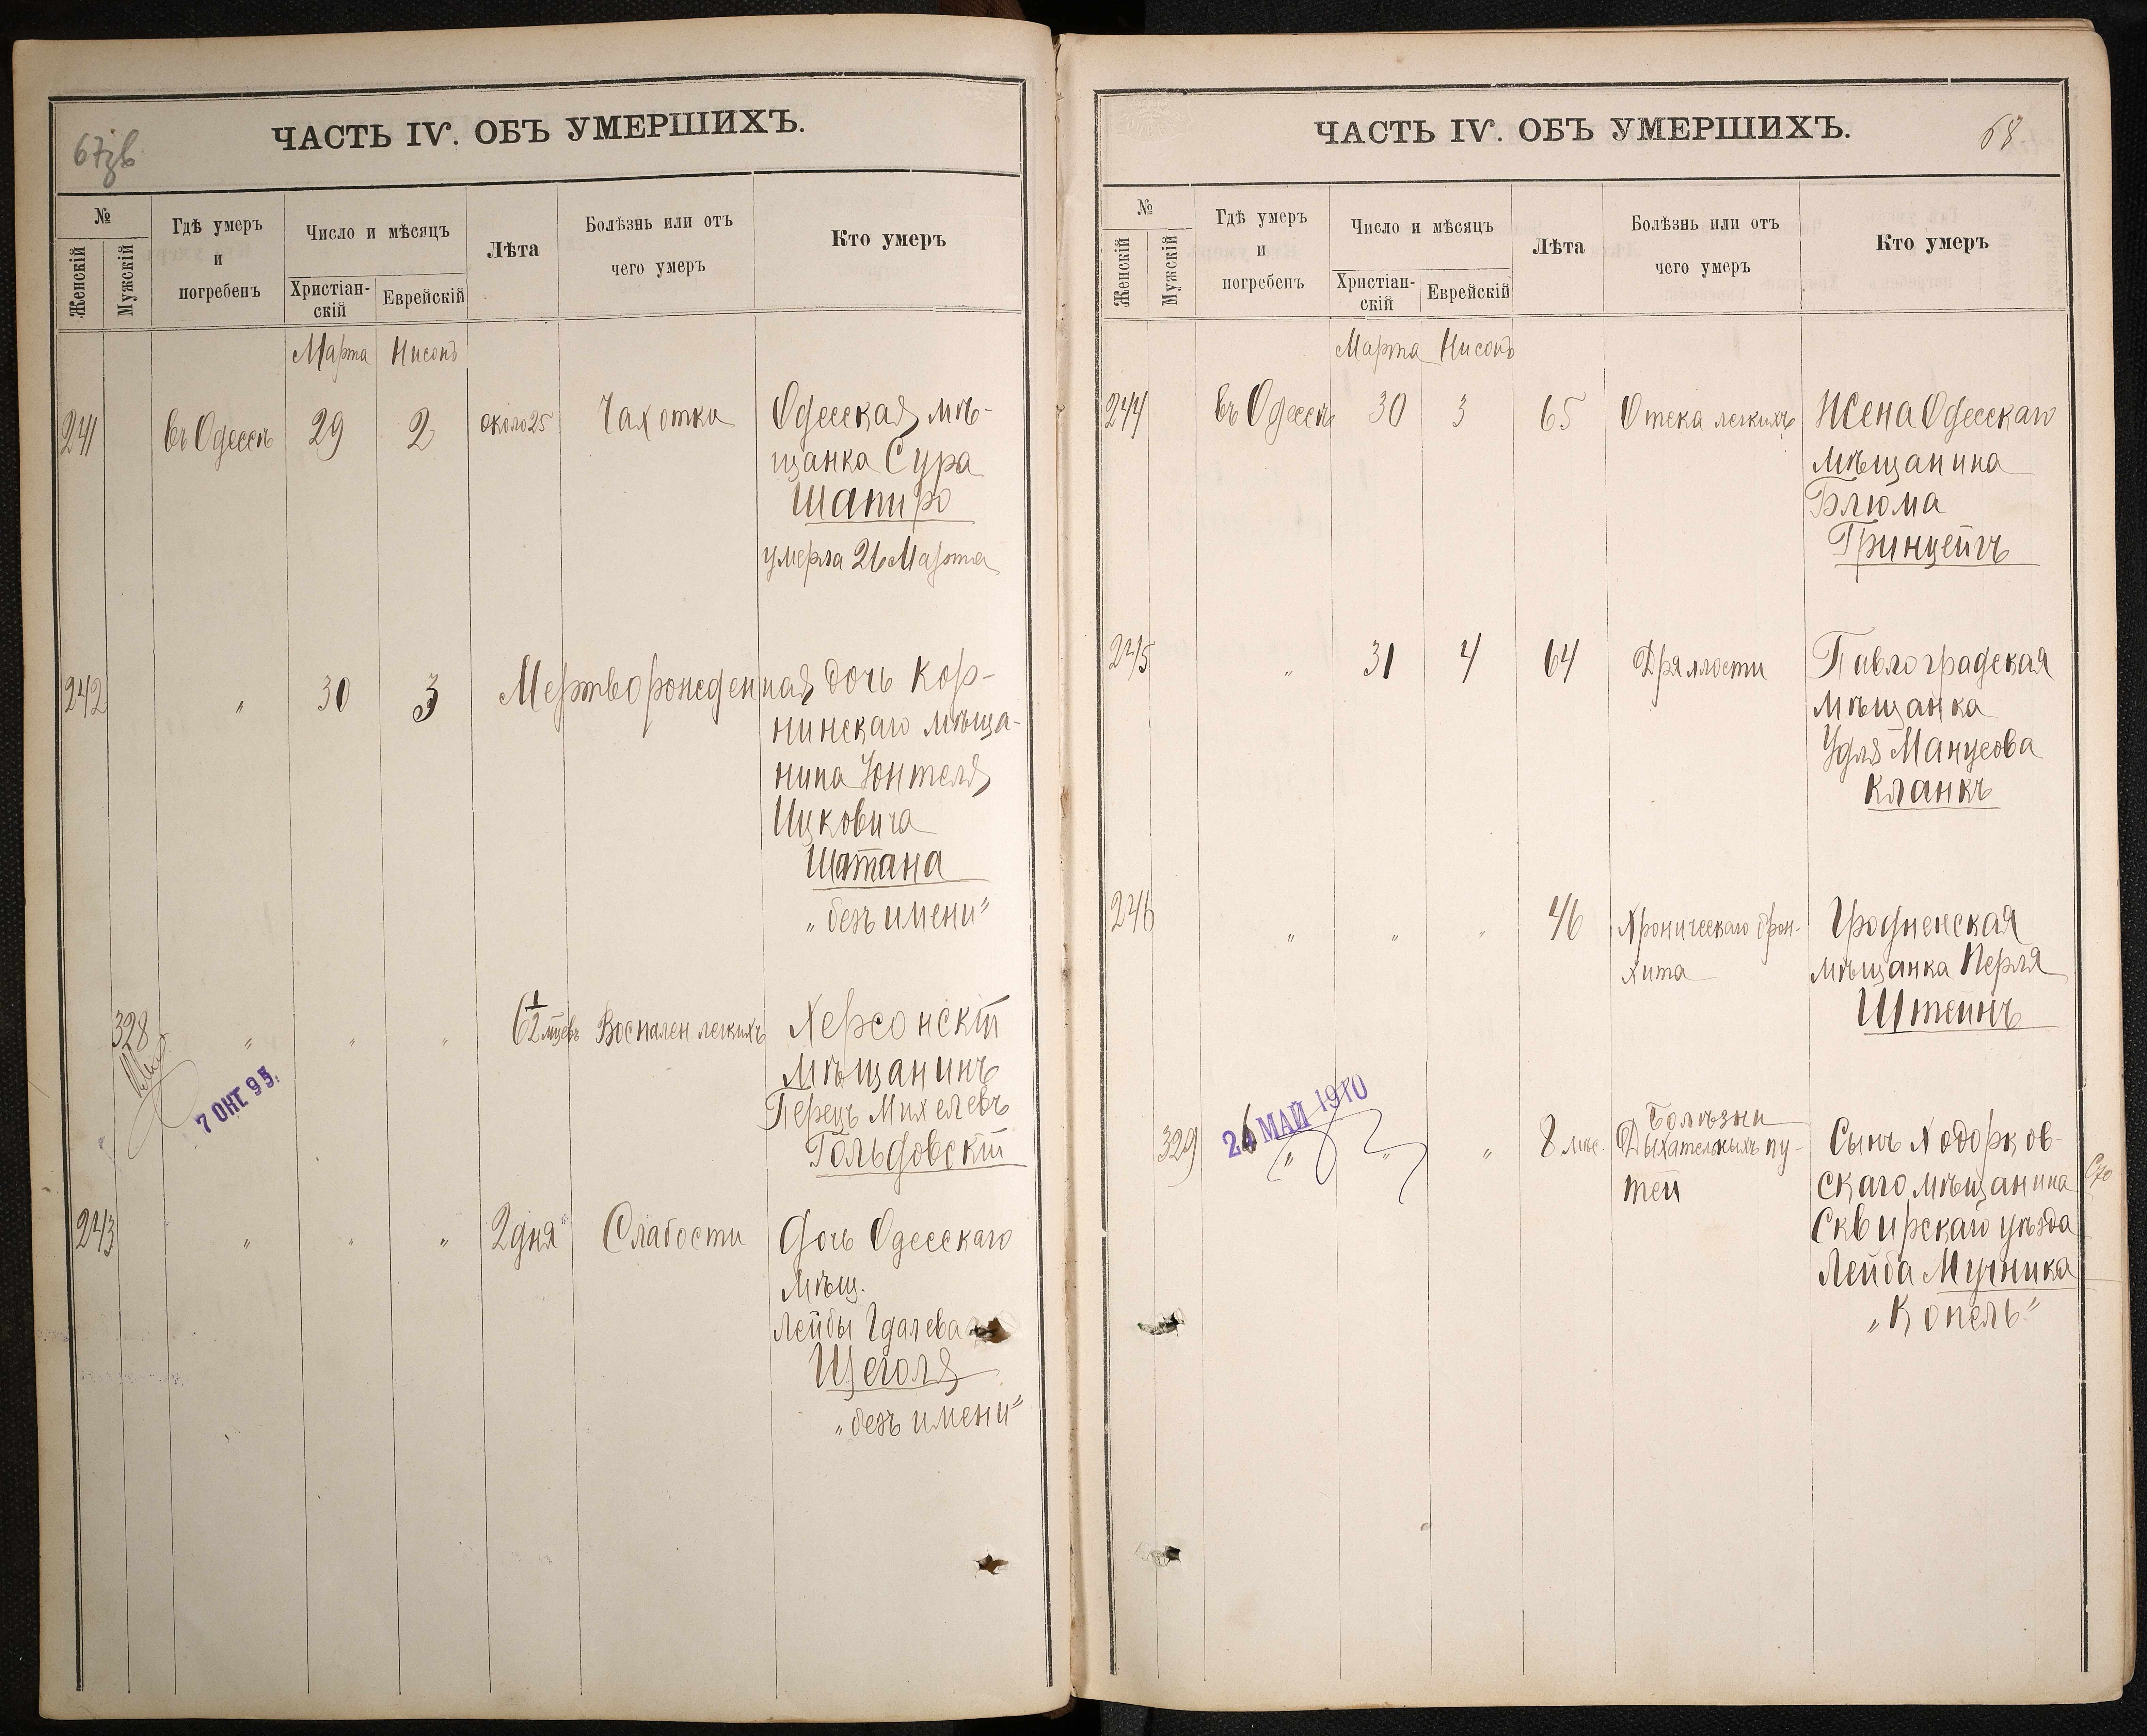 67зв
ЧАСТЬ IV. ОБЪ УМЕРШИХЪ.
№
Женскій
Мужскій
Гдѣ умеръ
и
погребенъ
Число и мѣсяцъ
Христіан-
скій
Еврейскій
Лѣта
Болѣзнь или отъ
чего умеръ
Кто умеръ
Марта Нисонъ
241 въ Одессѣ 29 2 около 25 Чахотки Одесская мѣ-
щанка Сура
Шапиро
умерла 26 Марта
242 " 30 3 Мертворожденная дочь Кор-
нинскаго мѣща-
нина Юнтеля
Ицковича
Шатана
„безъ имени"
328 " " " 6 1/2 мцевъ Воспален легкихъ Херсонскій
мѣщанинъ
Перецъ Михелевъ
Гольдовскій
7 ОКТ. 95.
243 " " " 2 дня Слабости Дочь Одесскаго
мѣщ.
Лейбы Гдалева
Щеголя
„безъ имени"
ЧАСТЬ IV. ОБЪ УМЕРШИХЪ.
68
№
Женскій
Мужскій
Гдѣ умеръ
и
погребенъ
Число и мѣсяцъ
Христіан-
скій
Еврейскій
Лѣта
Болѣзнь или отъ
чего умеръ
Кто умеръ
Марта Нисонъ
244 въ Одессѣ 30 3 65 Отека легкихъ Жена Одесскаго
мѣщанина
Блюма
Гринцейгъ
245 " 31 4 64 Дряхлости Павлоградская
мѣщанка
Удля Манусова
Кланкъ
246 " " " 46 Хроническаго брон-
хита
Гродненская
мѣщанка Перля
Штейнъ
26 МАЙ 1910
329 " " " 8 мѣс. Болѣзни
Дыхательныхъ пу-
тей
Сынъ Ходорков-
скаго мѣщанина
Сквирскаго уѣзда
Лейба Мучника
„Копель"